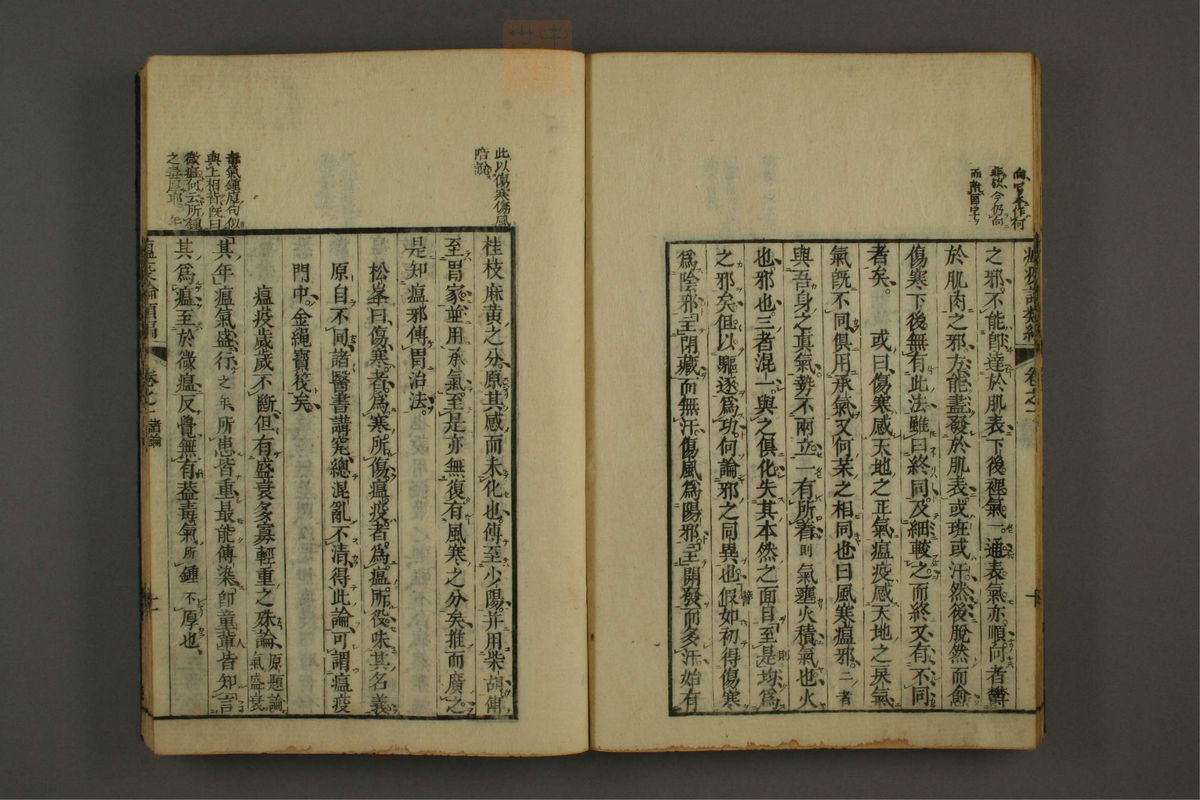 向官本作何
非故今仍向
而
之邪不能卽達於肌表下後裡氣一通表氣亦順向者欝
於肌肉之邪方能盡發於肌表或班或汗然後脫然而愈
傷寒下後無有此法雖曰終同及細較之而終又有不同
者矣 或曰傷寒感天地之正氣瘟疫感天地之戾氣
氣旣不同俱用承氣又何某之相同也曰風寒瘟邪二者
與吾身之眞氣勢不兩立一有所着則氣壅火積氣也火
也邪也三者混一與之俱化失其本然之面目至是均爲
之邪矣但以驅逐爲功何論邪之同異也假如初得傷寒
爲陰邪主閉藏而無汗傷風爲陽邪主開發而多汗始有
卷之一
十
此以傷寒傷風
陪說
桂枝麻黃之分原其感而未化也傳至少陽并用柴胡傳
至胃家並用承氣至是亦無復有風寒之分矣推而廣之
是知瘟邪傳胃治法
松峯曰傷寒者爲寒所傷瘟疫者爲瘟所役味其名義
原自不同諸醫書講究總混亂不清得此論可謂瘟疫
門中金繩寶筏矣
瘟疫歲歲不斷但有盛衰多寡輕重之殊論原題論氣盛衰
其年瘟氣盛行之年所患皆重最能傳染卽童輩皆知言
其爲瘟至於微瘟反覺無有葢毒氣所鍾不厚也
毒氣鍾厚句似
與上相背旣曰
微瘟何云所鍾
之毒厚耶
瘟疫論類編
卷之一
諸論
十一